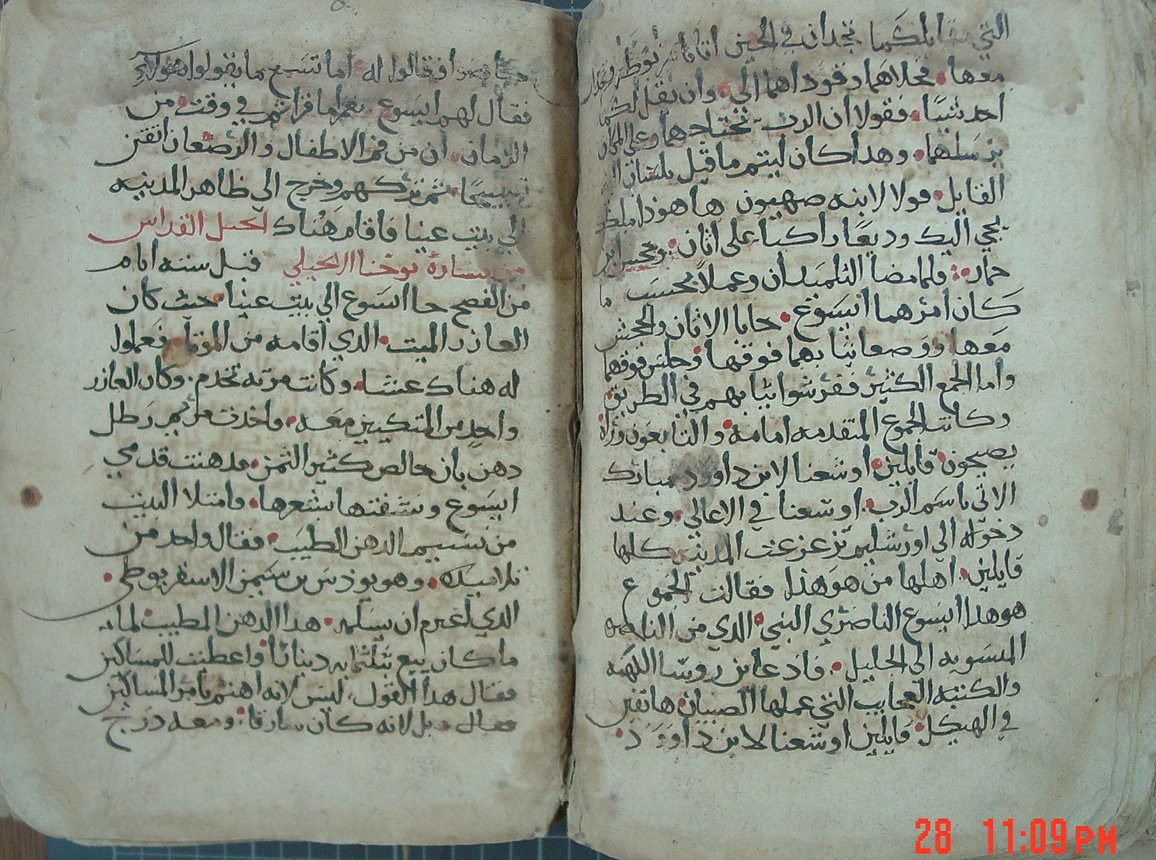 التي تقابلكما تجدان في الحين اتانا مربوطه وجحش
معها فحلاهما وقوداهما الي وان يقل لكما
احد شيا فقولا ان الرب تحتاجهما وعلى المكان
يرسلهما وهدا كان ليتم ما قيل بلسان
القايل قولا لابنه صهيون ها هودا ملك
يجي اليك وديعا راكبا على اتان وجحش ابن
حمار فلما مضا التلميدان وعملا بحسب ما
كان امرهما ايسوع جابا الاتان والجحش
معها ووضعا ثيابهما فوقها وجلس فوقهما
واما الجمع الكثير ففرشوا ثيابهم في الطريق
وكانت الجموع المتقدمه امامه والتابعون وراه
يصيحون قايلين اوشعنا لابن داوود مبارك
الاتي باسم الرب اوشعنا في الاعالي وعند
دخوله الى اورشليم تزعزعت المدينه كلها
قايلين اهلها من هو هذا فقالت الجموع
هو هدا ايسوع الناصري النبي الدي من الناصره
المنسوبه الى الجليل فاد عاين روسا الكهنه
والكتبه العجايب التي عملها الصبيان هاتفين
في الهيكل قايلين اوشعنا لابن داوود
فقالوا له اما تسمع ما يقولوا هولاي
فقال لهم ايسوع نعم اما قراتم في وقت من
الزمان ان من فم الاطفال والرضعان اتقنت
تسبيحا ثم تركهم وخرج الي ظاهر المدينه
الي بيت عنيا فاقام هناك انجيل القداس
من بشارة يوحنا الانجيلي قبل سته ايام
من الفصح جا ايسوع الي بيت عنيا حيث كان
العازر الميت الدي اقامه من الموتا فعملوا
له هناك عشا وكانت مرته تخدم وكان العازر
واحد من المتكيين معه واخدت مريم رطل
دهن بان خالص كثير الثمن فدهنت قدمي
ايسوع ونشفتها بشعرها فامتلا البيت
من نسيم الدهن الطيب فقال واحد من
تلاميده وهو يودس بن سيمن الاسخريوطي
الدي اعتزم ان يسلمه هدا الدهن المطيب لمادا
ما كان يبيع بثلثمايه دينارا واعطيت للمساكين
فقال هدا القول ليس لانه اهتم بامر المساكين
فقال بل لانه كان سارقا ومعه درج